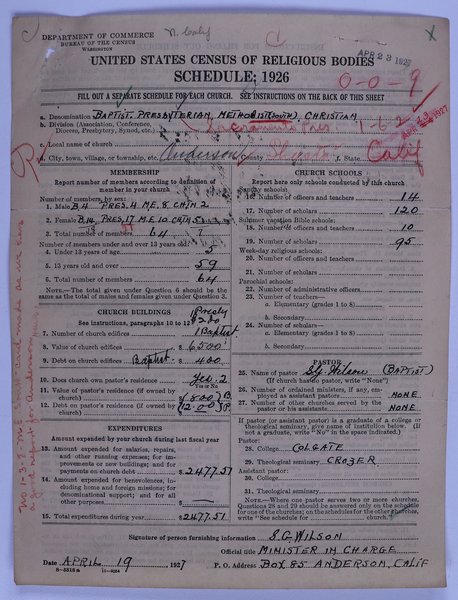 N. Calif
C
DEPARTMENT OF COMMERCE
BUREAU OF THE CENSUS
WASHINGTON
APR 23 1927
UNITED STATES CENSUS OF RELIGIOUS BODIES
SCHEDULE, 1926
0-0-9
FILL OUT A SEPARATE SCHEDULE FOR EACH CHURCH. SEE INSTRUCTIONS ON THE BACK OF THIS SHEET
a. Denomination BAPTIST, PRESBYTERIAN, METHODIST (SOUTH), CHRISTIAN
b. Division (Association, Conference, Diocese, Presbytery, Synod, etc.) Sacramento Pres. 1-6-2
c. Local name of church
d. City, town, village, or township, etc. Anderson County Shasta State Calif
MEMBERSHIP
Report number of members according to definition of member in your church
Number of members, by sex:
1. Male B.4 PRES.4 M.E.8 CH'N 2
2. Female B.14 PRES.17 M.E.10 CH'N 5
3. Total number of members 64
Number of members under and over 13 years old:
4. Under 13 years of age 5
5. 13 years old and over 59
6. Total number of members 64
NOTE.—The total given under Question 6 should be the same as the total of males and females given under Question 3.
CHURCH BUILDINGS
See instructions, paragraphs 10 to 12
7. Number of church edifices 1 Baptist
8. Value of church edifices $ 6500
9. Debt on church edifices Baptist $ 400
10. Does church own pastor's residence? Yes. 2
11. Value of pastor's residence (if owned by church) $
12. Debt on pastor's residence (if owned by church) $
EXPENDITURES
Amount expended by your church during last fiscal year
13. Amount for salaries, repairs, and other running expenses; for improvements or new buildings; and for payments on church debt $ 2477.51
14. Amount for benevolences, including home and foreign missions; for denominational support; and for all other purposes $
15. Total expenditures during year $ 2477.51
CHURCH SCHOOLS
Report here only schools conducted by this church
Sunday schools:
16. Number of officers and teachers 14
17. Number of scholars 120
Summer vacation Bible schools:
18. Number of officers and teachers 10
19. Number of scholars 95
Week-day religious schools:
20. Number of officers and teachers
21. Number of scholars
Parochial schools:
22. Number of administrative officers
23. Number of teachers—
a. Elementary (grades 1 to 8)
b. Secondary
24. Number of scholars—
a. Elementary (grades 1 to 8)
b. Secondary
PASTOR
25. Name of pastor S.G. Wilson (BAPTIST)
(If church has no pastor, write "None")
26. Number of ordained ministers, if any, employed as assistant pastors NONE
27. Number of other churches served by the pastor or his assistant NONE
If pastor (or assistant pastor) is a graduate of college or theological seminary, give name of institution below. (If not a graduate, write "No" in the space indicated.)
Pastor:
28. College COLGATE
29. Theological seminary CROZER
Assistant pastor:
30. College
31. Theological seminary
NOTE.—Where one pastor serves two or more churches, Questions 28 and 29 should be answered only on the schedule for one of the churches; on the schedules for the other churches, write "See schedule for church."
Signature of person furnishing information S.G. WILSON
Official title MINISTER IN CHARGE
Date APRIL 19 1927 P. O. Address BOX 85 ANDERSON, CALIF